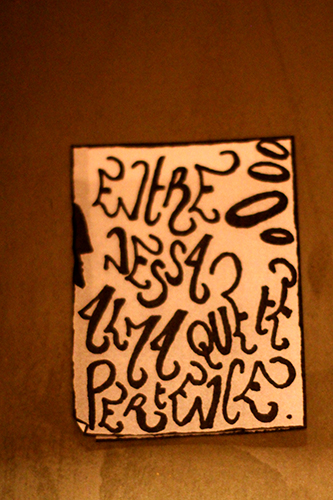 ENTRE
NESSA
ALMA QUE TE
PERTENCE.